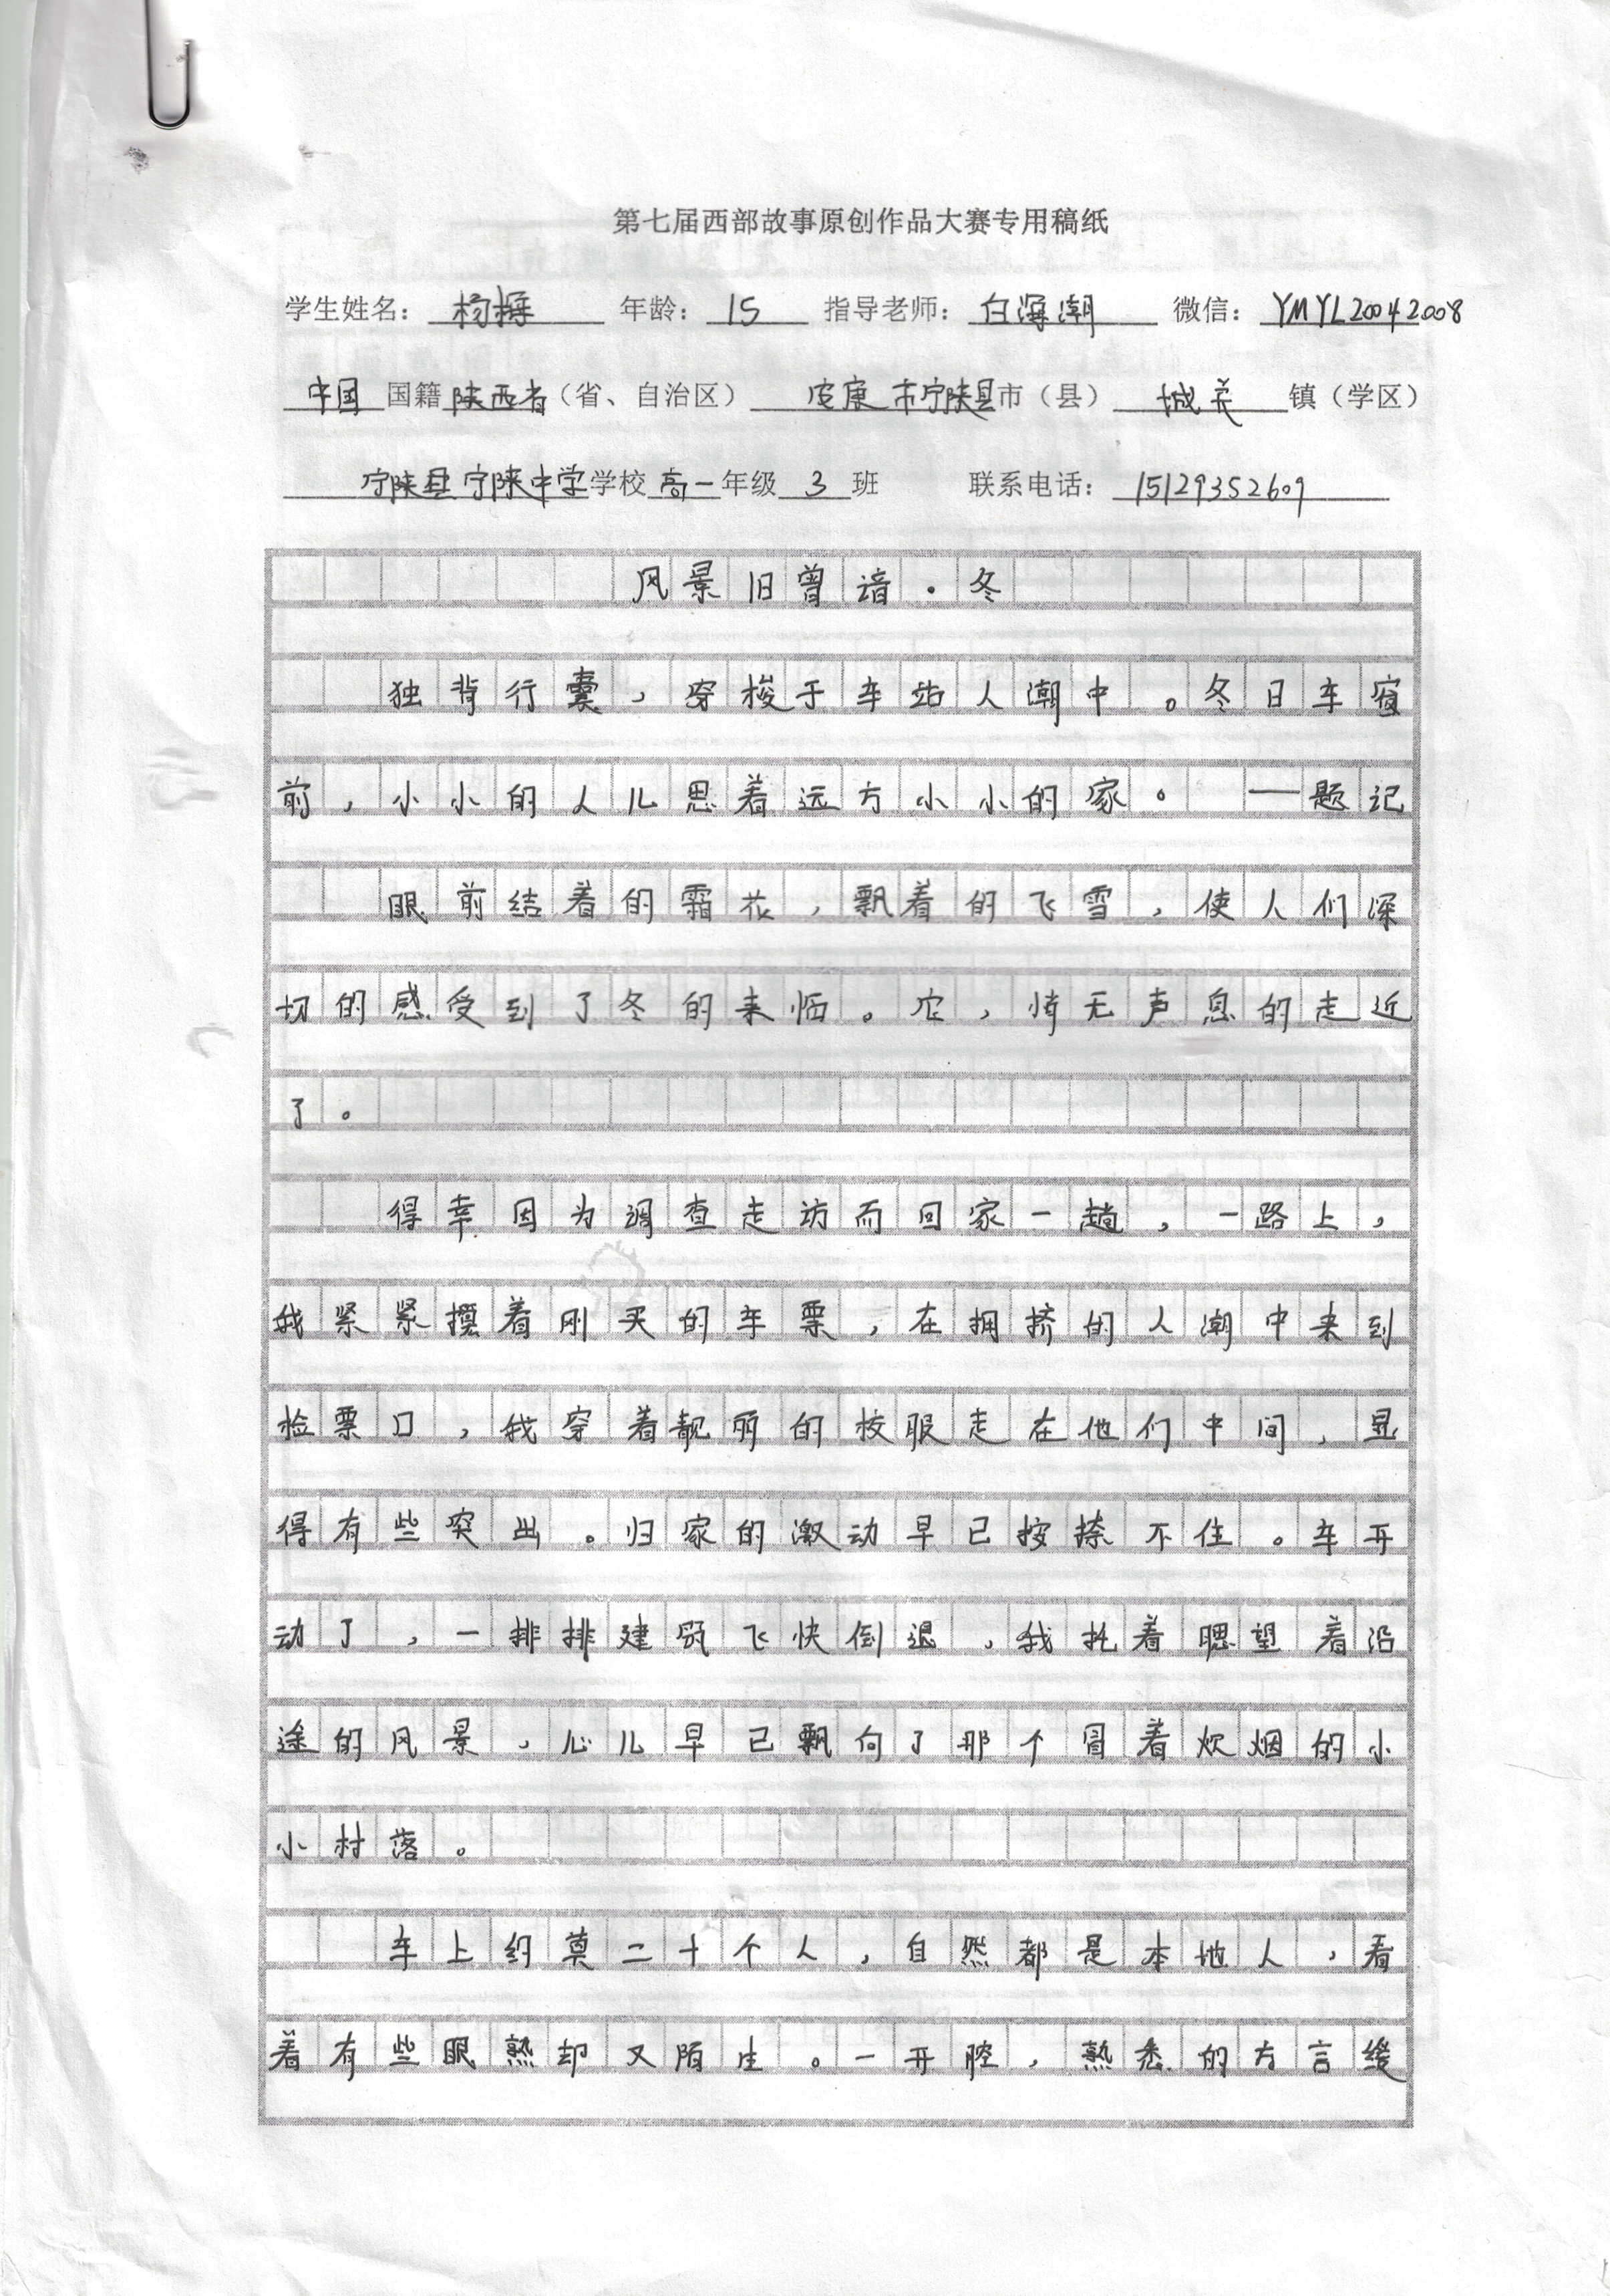 第七届西部故事原创作品大赛专用稿纸
学生姓名： 杨樨 年龄： 15 指导老师： 白海潮 微信： YMYL20042008
中国 国籍 陕西省（省、自治区） 安康市宁陕县 市（县） 城关 镇（学区）
宁陕县宁陕中学 学校 高一 年级 3 班 联系电话： 15129352609
风景旧曾谙·冬
独背行囊，穿梭于车站人潮中。冬日车窗
前，小小的人儿思着远方小小的家。 ——题记
眼前结着的霜花，飘着的飞雪，使人们深
切的感受到了冬的来临。它，悄无声息的走近
了。
得幸因为调查走访而回家一趟，一路上，
我紧紧攥着刚买的车票，在拥挤的人潮中来到
检票口，我穿着靓丽的校服走在他们中间，显
得有些突出。归家的激动早已按捺不住。车开
动了，一排排建筑飞快倒退，我托着腮望着沿
途的风景，心儿早已飘向了那个冒着炊烟的小
小村落。
车上约莫二十个人，自然都是本地人，看
着有些眼熟却又陌生。一开腔，熟悉的方言缓